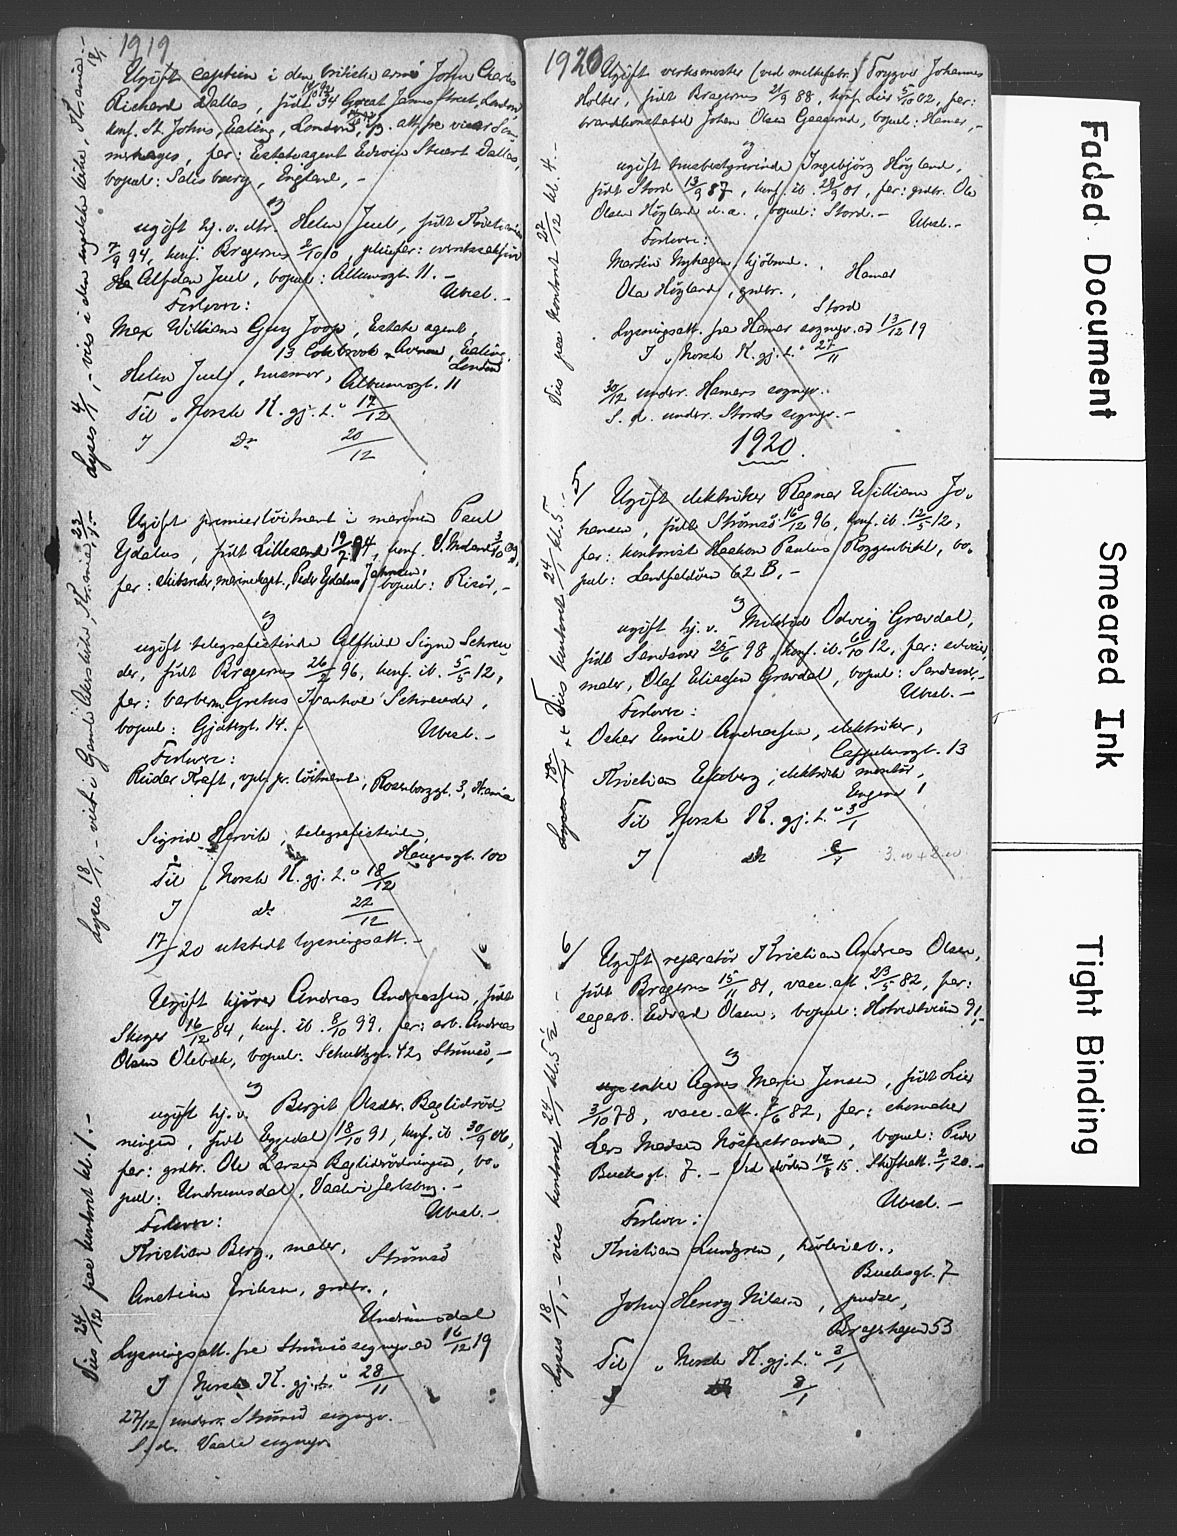 1919
Ugift captein i den britiske armé John Charles
Richard Dallas, født 34 Great James Street, London
konf. St. Johns, Ealing, London, att. fra
far: Estateagent Edwin Stuart Dallas,
bopæl: Salisbury, England, -
og
ugift hj. v. dtr. Helen Juel, født Kristiania
7/9 94, konf. Bragernes 2/10 10 far: verkseier
Alfden Juel, bopæl: Albumsgt. 11. -
Ubesl. -
Forlovere:
Max William Guy Joop, Estate agent,
13 Colebrook Avenue, Ealing,
London
Helen Juel, husmor, Albumsgt. 11
Til "Norsk K. gj. L." 17/12
I Do 20/12
Lyses 4/1, - vies i den engelske kirke, Kr.ania
Ugift premierløitnant i marinen Paul
Ydalus, født Lillesand 19/2 94, konf. V. Moland 3/10 09,
far: skibsreder, marinekapt. Peder Ydalus Jahnsen, bopæl: Risør, -
og
ugift telegrafistinde Alfhild Signe Schreu-
der, født Bragernes 26/2 96, konf. ib. 5/5 12,
far: barberm. Gretus Ivanhoe Schreuder,
bopæl: Gjetergt. 14. - Ubesl. -
Forlovere:
Reidar Kraft, løitnant, Rosenborggt. 3, Kr.ania
Sigrid Hervik, telegrafistinde,
Haugesgt. 100
Til "Norsk K. gj. L." 18/12
I do 22/12
17/1 20 utstedt lysningsatt. -
Lyses 18/1, - viet i Gamle Akers kirke, Kr.ania 23/1
Ugift kjører Andreas Andreassen, født
Skoger 16/12 84, konf. ib. 8/10 99, far: arb. Andreas
Olsen Olebak, bopæl: Schultzgt. 42, Strømsø, -
og
ugift hj. v. Bergit Olsdtr. Baglidrød-
ningen, født Eggedal 18/10 91, konf. ib. 30/9 06,
far: grdbr. Ole Larsen Baglidrødningen, bo-
pæl: Undrumsdal, Vaale i Jarlsberg. -
Ubesl. -
Forlovere:
Kristian Berg, maler, Strømsø
Anstein Eriksen, grdbr.,
Undrumsdal
Lysningsatt. fra Strømsø sogn. av 16/12 19
I "Norsk K. gj. L." 28/11
27/12 underr. Strømsø sognepr.
S. d. Vaale sognepr.
Vies 24/12 paa kontoret kl. 1. -
1920
Ugift verksmester (ved melkefabr.) Trygve Johannes
Holter, født Bragernes 21/9 88, konf. Lier 5/10 02, far:
brandkonstabel Johan Olsen Gaaserud, bopæl: Hamar, -
og
ugift husbestyrerinde Ingebjørg Høgland,
født Stord 13/9 87, konf. ib. 29/9 01, far: grdbr. Ole
Olsen Høgland d. a., bopæl: Stord. - Ubesl. -
Forlovere:
Martin Nyhagen, kjøbmd., Hamar
Ola Høgland, grdbr.,
Stord
Lysningsatt. fra Hamar sognepr. av 13/12 19
I "Norsk K. gj. L." 27/11
30/12 underr. Hamars sognepr.
S. d. underr. Stords sognepr. -
Vies paa kontoret 27/12 kl. 4. -
1920.
5/ Ugift elektriker Ragnar William Jo-
hansen, født Strømsø 16/12 96, konf. ib. 12/5 12,
far: kontorist Haakon Paulus Roggenbihl, bo-
pæl: Landfaldøen 62 B, -
og
ugift hj. v. Mildrid Odveig Gravdal,
født Sandsvær 25/6 98 konf. ib. 6/10 12, far:
maler, Olaf Eliassen Gravdal, bopæl: Sandsvær. -
Ubesl. -
Forlovere:
Oskar Emil Andreassen, elektriker,
Cappelensgt. 13
Kristian Ekeberg, elektrisk montør,
Engene 1
Til Norsk K. gj. L. 3/1
I do 8/1
Vies kontoret 24/1 kl. 5. -
6/ Ugift reparatør Kristian Andreas Olsen,
født Bragernes 15/11 81, vacc. att. 23/5 82, far:
sagarb. Edvard Olsen, bopæl: Hotvedtveien 91, -
og
enke Agnes Marie Jensen, født Lier
3/10 78, vacc. att. 7/6 82, far: skomaker
Lars Madsen Nøstestranden, bopæl: Peder
Buchsgt. 7. - Ved døden 17/5 15. Skifteatt. 2/1 20. -
Ubesl. -
Forlovere:
Kristian Lundgren, høvleriarb.,
Buchsgt. 7
John Henry Nilsen, pudser,
Brageshagen 53
Til "Norsk K. gj. L." 3/1
I do 8/1
Lyses 18/1, - vies kontoret 24/1 kl. 5 1/2. -
Faded Document
Smeared Ink
Tight Binding